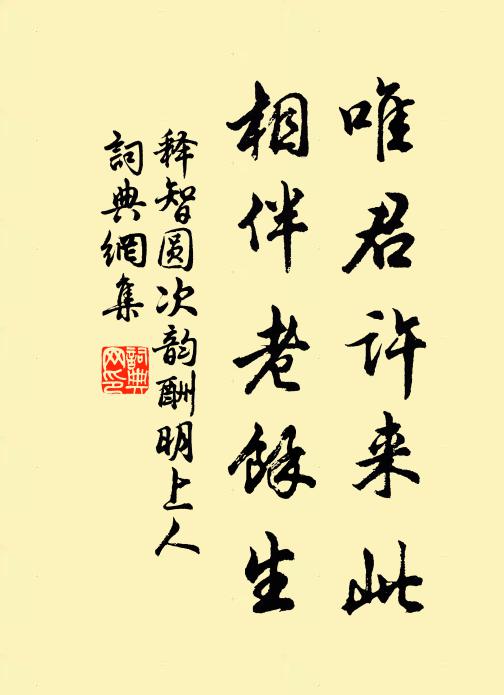 唯君许来此
相伴老餘生
释智圆次韵酬明上人
詞典網集
詞典網印